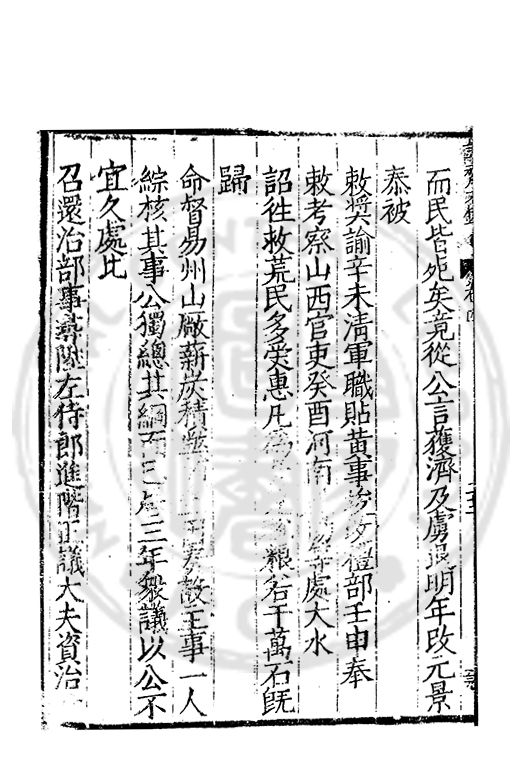 而民皆死矣竟從公言獲濟及虜退明年改元景
泰被
敕奬諭辛未清軍職貼黃事竣改禮部壬申奉
敕考察山西官吏癸酉河南等處大水
詔徃救荒民多受惠凡為糧若干萬石旣
歸
命督易州山廠薪炭積弊奏設主事一人
綜核其事公獨總其綱而已居三年僉議以公不
宜久處比
召還治部事尋陞左侍郎進階正議大夫資治